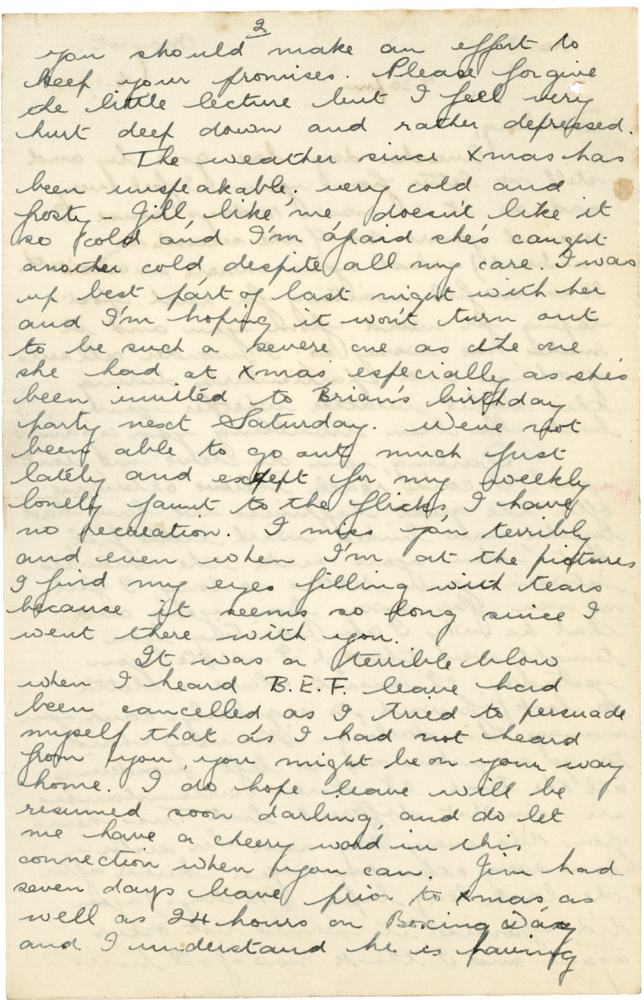 2
you should make an effort to
keep your promises. Please forgive
the little lecture but I feel very
hurt deep down and rather depressed.
The weather since Xmas has
been unspeakable, very cold and
frosty - Jill, like me, doesn't like it
so cold and I'm afraid she's caught
another cold despite all my care. I was
up best part of last night with her
and I'm hoping it won't turn out
to be such a severe one as the one
she had at Xmas, especially as she's
been invited to Brian's birthday
party next Saturday. We've not
been able to go out much just
lately and except for my weekly
lonely jaunt to the flicks, I have
no recreation. I miss you terribly
and even when I'm at the pictures
I find my eyes filling with tears
because it seems so long since I
went there with you.
It was a terrible blow
when I heard B.E.F. leave had
been cancelled as I tried to persuade
myself that as I had not heard
from you, you might be on your way
home. I do hope leave will be
resumed soon darling, and do let
me have a cheery word in this
connection when you can. Jim had
seven days leave prior to Xmas, as
well as 24 hours on Boxing Day
and I understand he is having